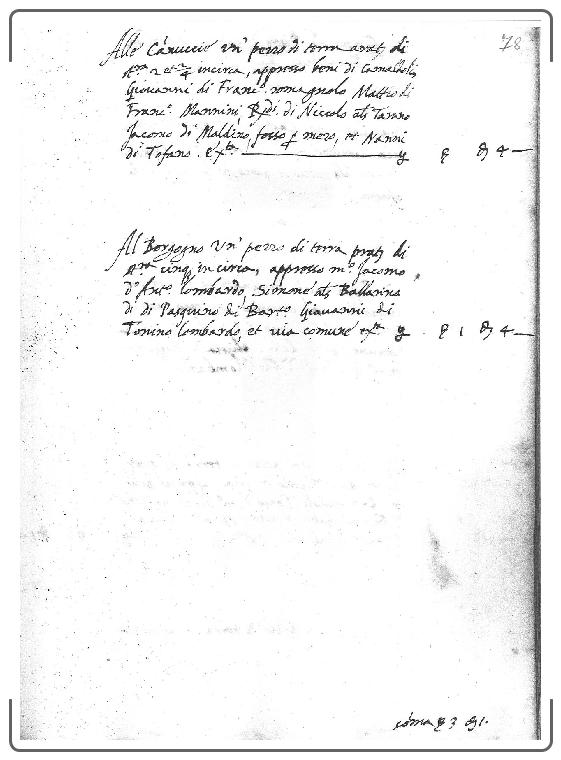 78
Alle Cānuccie un' pezzo di terra arat: di
st.ra 2 et 2/4 incirca, appresso beni di Camaldoli,
Giovanni di Franc.o romagnolo Matteo di
Franc.o Nannini, di Niccolo als Tarano
Jacomo di Maldino, fosso mezo, et Nanni
di Tofano. 4 —
Al Borgogno un' pezzo di terra prat: di
st.ra cinq. in circa, appresso m.o Jacomo
d'Ant.o lombardo, Simone als Ballarino
di di Pasquino di Bart.o Giovanni di
Tonino lombardo, et via comune 1 4 —
sōma 3 1.